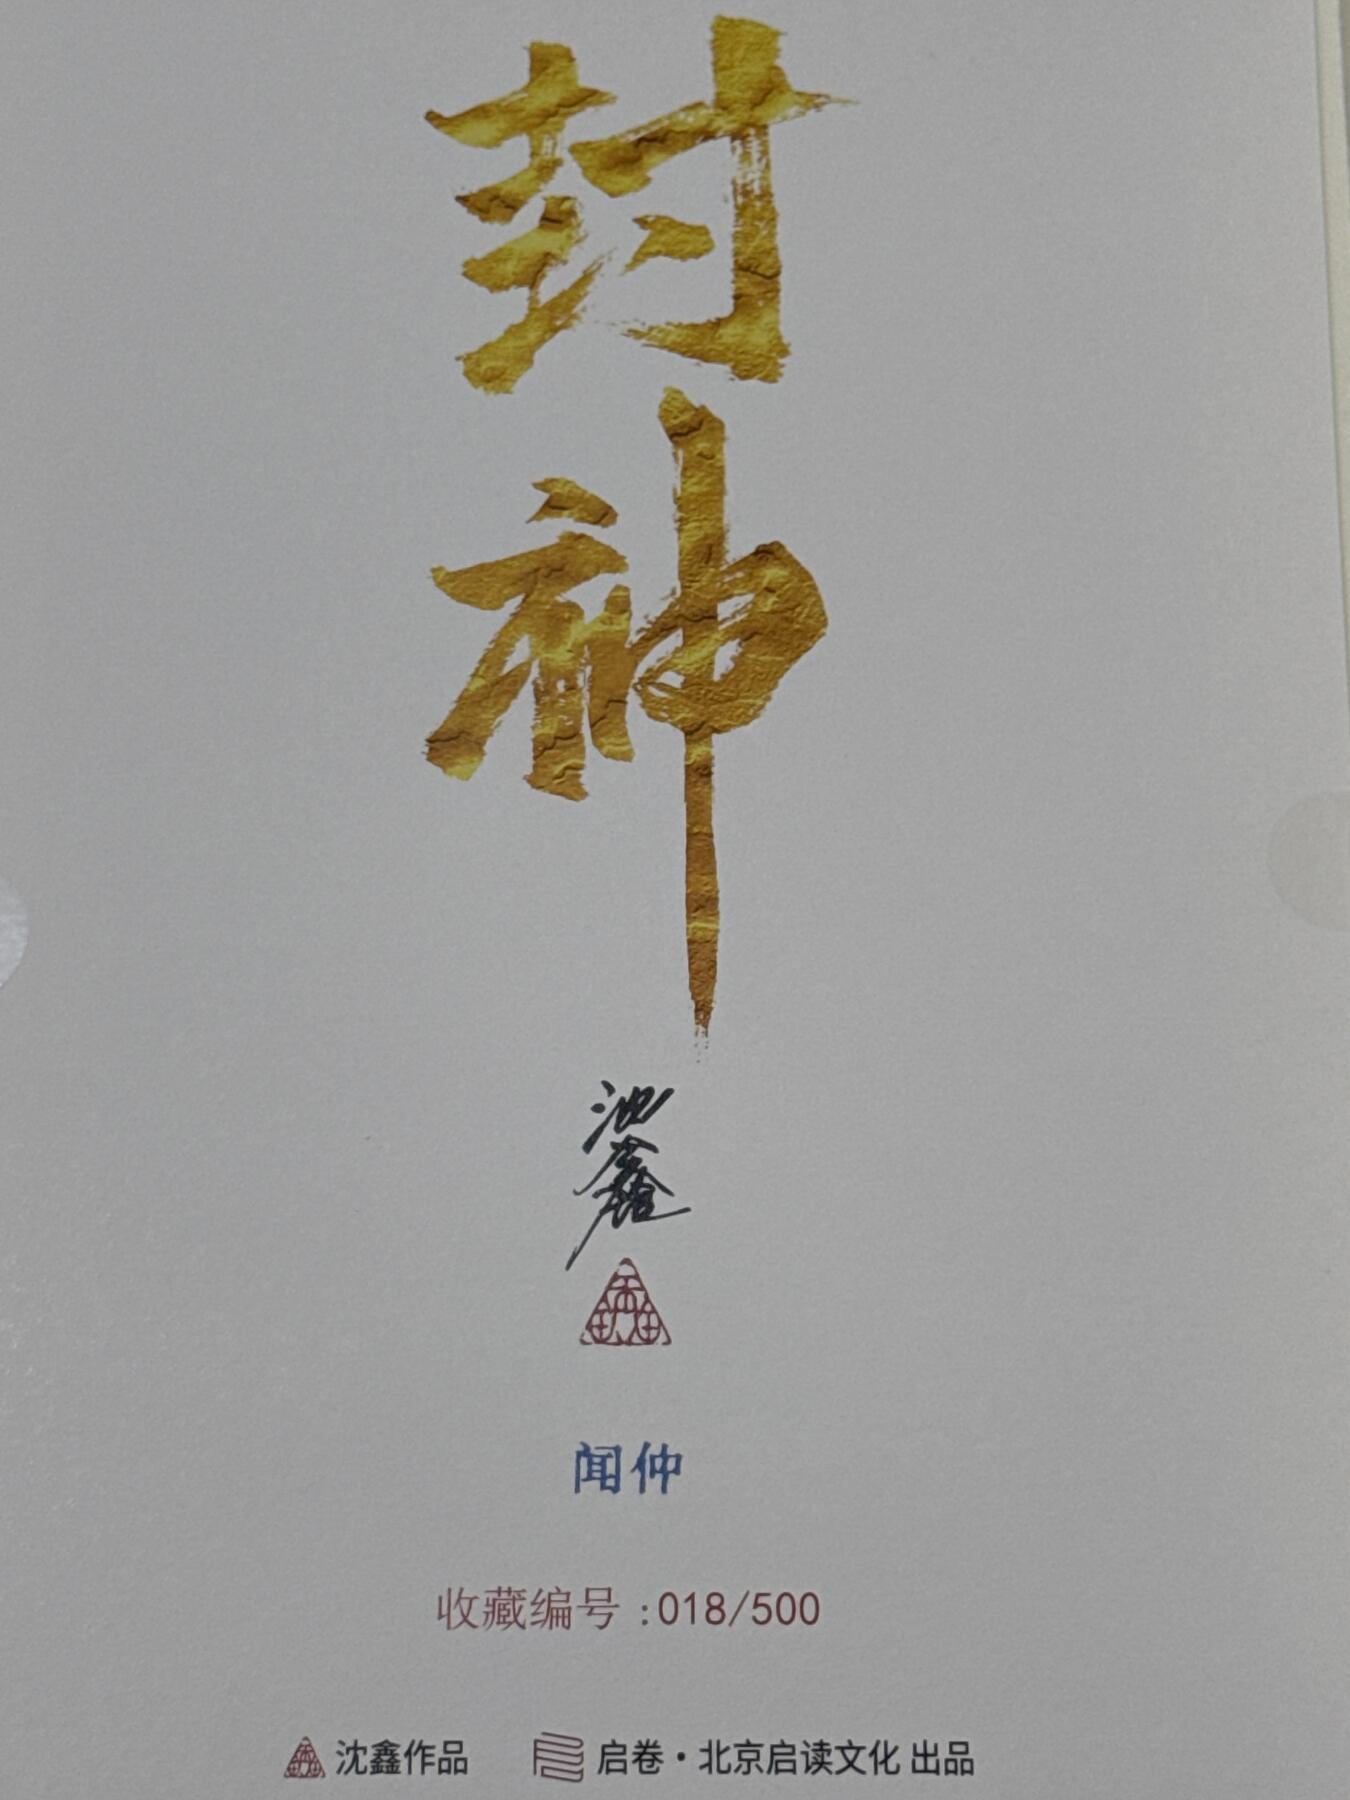 封神
沈鑫
鑫
闻仲
收藏编号:018/500
鑫 沈鑫作品 启卷·北京启读文化 出品